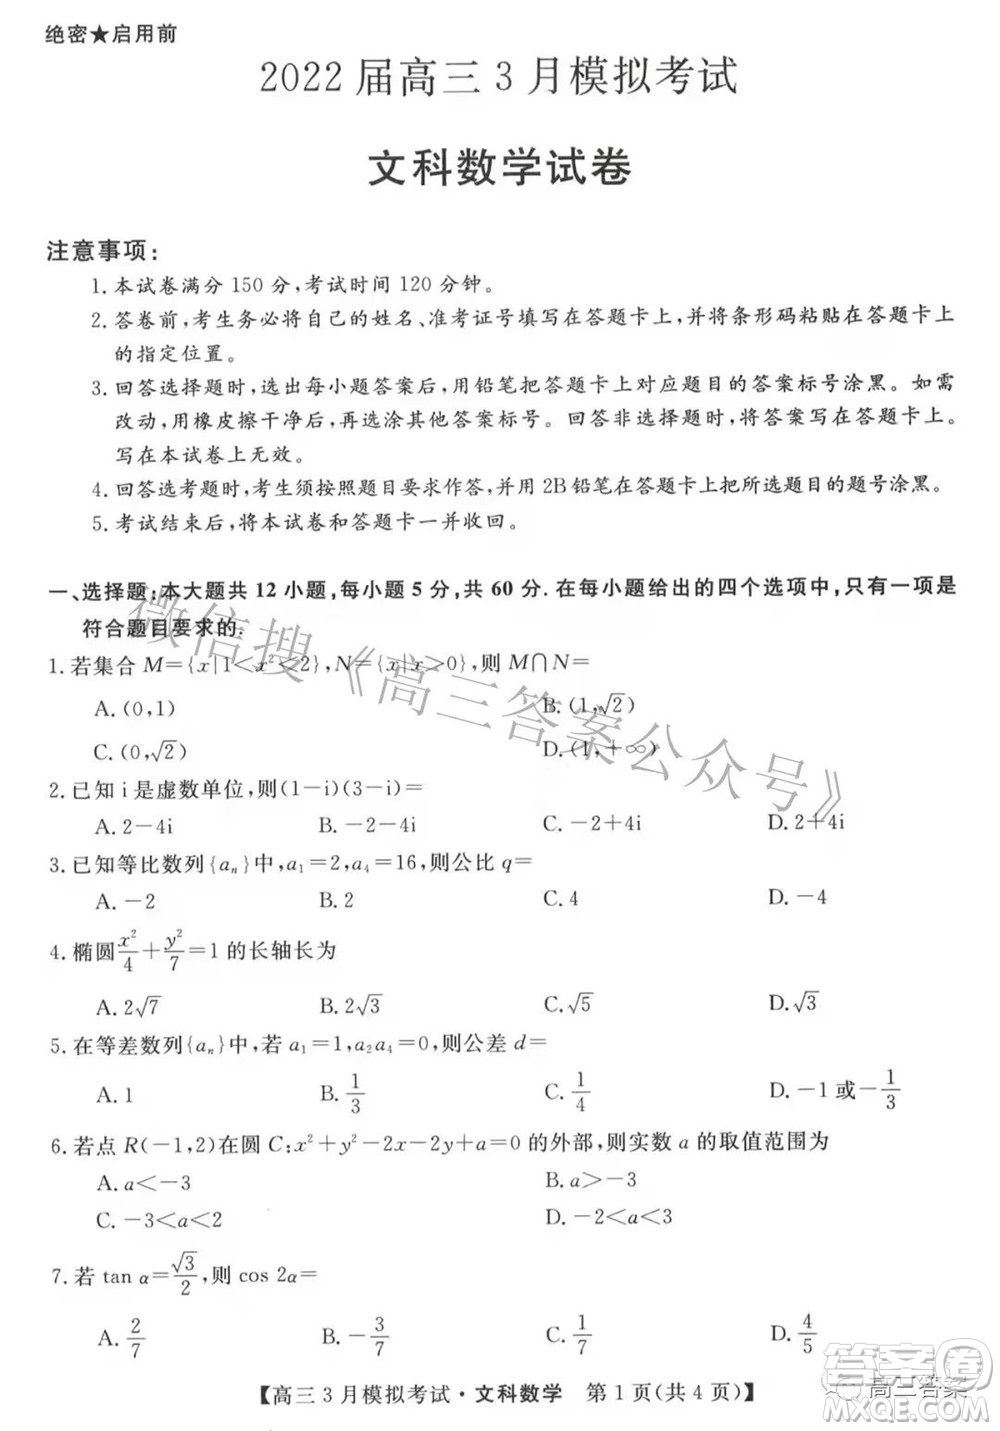 绝密★启用前
2022届高三3月模拟考试
文科数学试卷
注意事项:
1.本试卷满分150分,考试时间120分钟。
2.答卷前,考生务必将自己的姓名、准考证号填写在答题卡上,并将条形码粘贴在答题卡上
的指定位置。
3.回答选择题时,选出每小题答案后,用铅笔把答题卡上对应题目的答案标号涂黑。如需
改动,用橡皮擦干净后,再选涂其他答案标号。回答非选择题时,将答案写在答题卡上。
写在本试卷上无效。
4.回答选考题时,考生须按照题目要求作答,并用2B铅笔在答题卡上把所选题目的题号涂黑。
5.考试结束后,将本试卷和答题卡一并收回。
一、选择题:本大题共12小题,每小题5分,共60分.在每小题给出的四个选项中,只有一项是
符合题目要求的.
1.若集合M={x|1<x²<2},N={x|x>0},则M∩N=
A.(0,1) B.(1,√2)
C.(0,√2) D.(1,+∞)
2.已知i是虚数单位,则(1-i)(3-i)=
A.2-4i B.-2-4i C.-2+4i D.2+4i
3.已知等比数列{aₙ}中,a₁=2,a₄=16,则公比q=
A.-2 B.2 C.4 D.-4
4.椭圆x²/4+y²/7=1的长轴长为
A.2√7 B.2√3 C.√5 D.√3
5.在等差数列{aₙ}中,若a₁=1,a₂a₄=0,则公差d=
A.1 B.1/3 C.1/4 D.-1或-1/3
6.若点R(-1,2)在圆C:x²+y²-2x-2y+a=0的外部,则实数a的取值范围为
A.a<-3 B.a>-3
C.-3<a<2 D.-2<a<3
7.若tan α=√3/2,则cos 2α=
A.2/7 B.-3/7 C.1/7 D.4/5
【高三3月模拟考试·文科数学 第1页(共4页)】
微信搜《高三答案公众号》
答案卷
高三答案
MXQE.COM